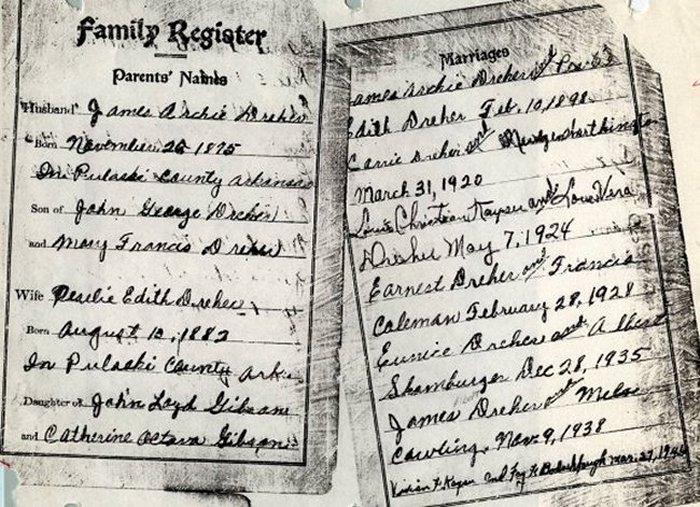 Family Register
Parents' Names
Husband James Archie Dreher
Born November 25 1875
In Pulaski County Arkansas
Son of John George Dreher
and Mary Francis Dreher
Wife Edith Dreher
Born August 12, 1882
In Pulaski County Ark
Daughter of John Loyd Gibson
and Catherine Octava Gibson
Marriages
James Archie Dreher and
Edith Dreher Feb. 10, 1898
Carrie Dreher and Worthington
March 31, 1920
Louis Christian Kayser and Love Vera
Dreher May 7, 1924
Earnest Dreher and Francis
Coleman February 28, 1928
Eunice Dreher and Albert
Shamburger Dec 28, 1935
James Dreher and
Cowling, Nov. 9, 1938
Vivian F. Kayser and Foy Mar. 27, 194